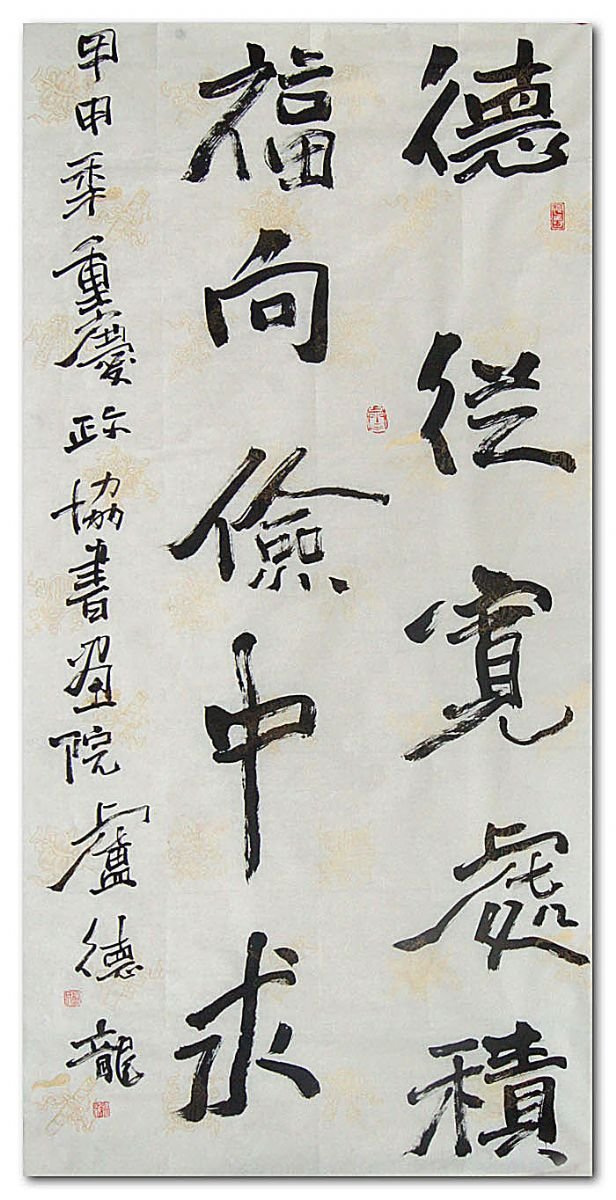 德從寬處積
福向儉中求
甲申季重慶政协書画院盧德龍